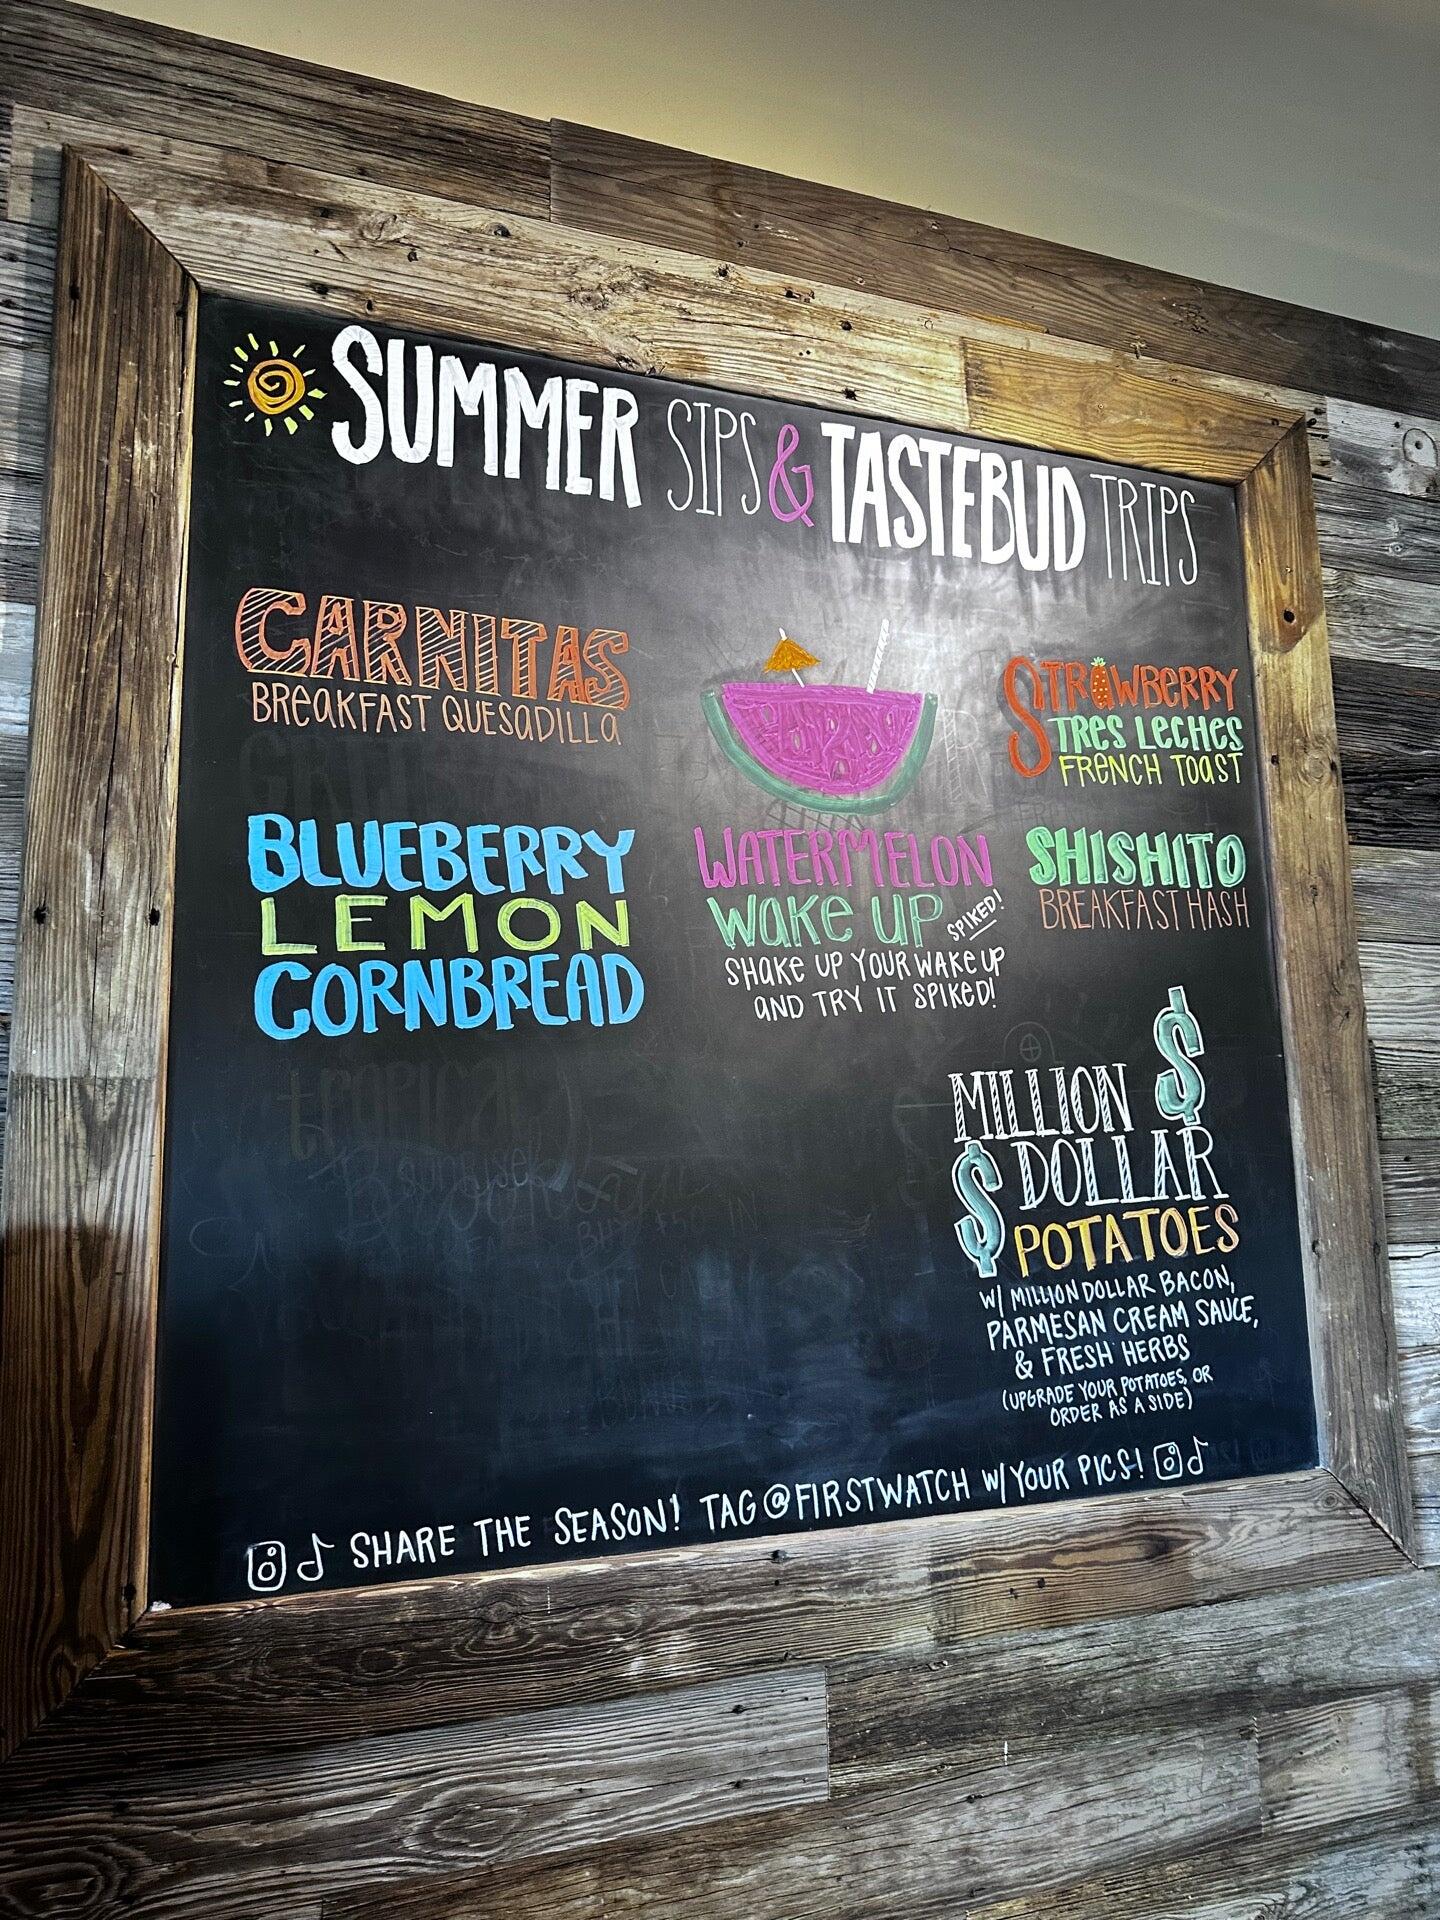 SUMMER SIPS & TASTEBUD TRIPS
CARNITAS
BREAKFAST QUESADILLA
BLUEBERRY
LEMON
CORNBREAD
WATERMELON
WAKE UP SPIKED!
SHAKE UP YOUR WAKE UP
AND TRY IT SPIKED!
STRAWBERRY
TRES LECHES
FRENCH TOAST
SHISHITO
BREAKFAST HASH
MILLION $
$ DOLLAR
POTATOES
W/ MILLION DOLLAR BACON,
PARMESAN CREAM SAUCE,
& FRESH HERBS
(UPGRADE YOUR POTATOES, OR
ORDER AS A SIDE)
SHARE THE SEASON! TAG @FIRSTWATCH W/ YOUR PICS!